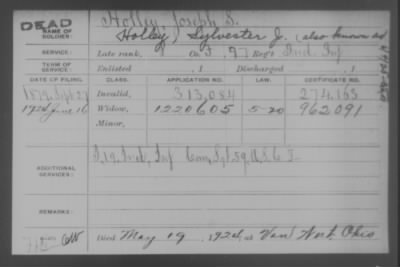 DEAD
NAME OF SOLDIER:
Holley, Joseph S.
Holley, Sylvester J. (also known as
SERVICE:
Late rank, Co. F, 97 Reg't Ind. Inf
TERM OF SERVICE:
Enlisted , 1 Discharged , 1
DATE OF FILING. CLASS. APPLICATION NO. LAW. CERTIFICATE NO.
1879, Sept 27 Invalid, 313,084 274,163
1924 June 16 Widow, 1220605 5-20 962,091
Minor,
ADDITIONAL SERVICES:
Ind, Inf
REMARKS:
Died May 19, 1924, at Van Wert, Ohio